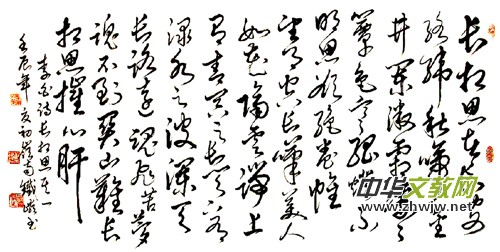 长相思在长安
络纬秋啼金
井阑微霜凄凄
簟色寒孤灯不
明思欲绝卷帷
望月空长叹美人
如花隔云端上
有青冥之
渌水之波澜天
长路远魂飞苦梦
魂不到关山难长
相思摧心肝
李白诗长相思其一
壬辰年夏初
书
中华文教网
www.zhwjw.com